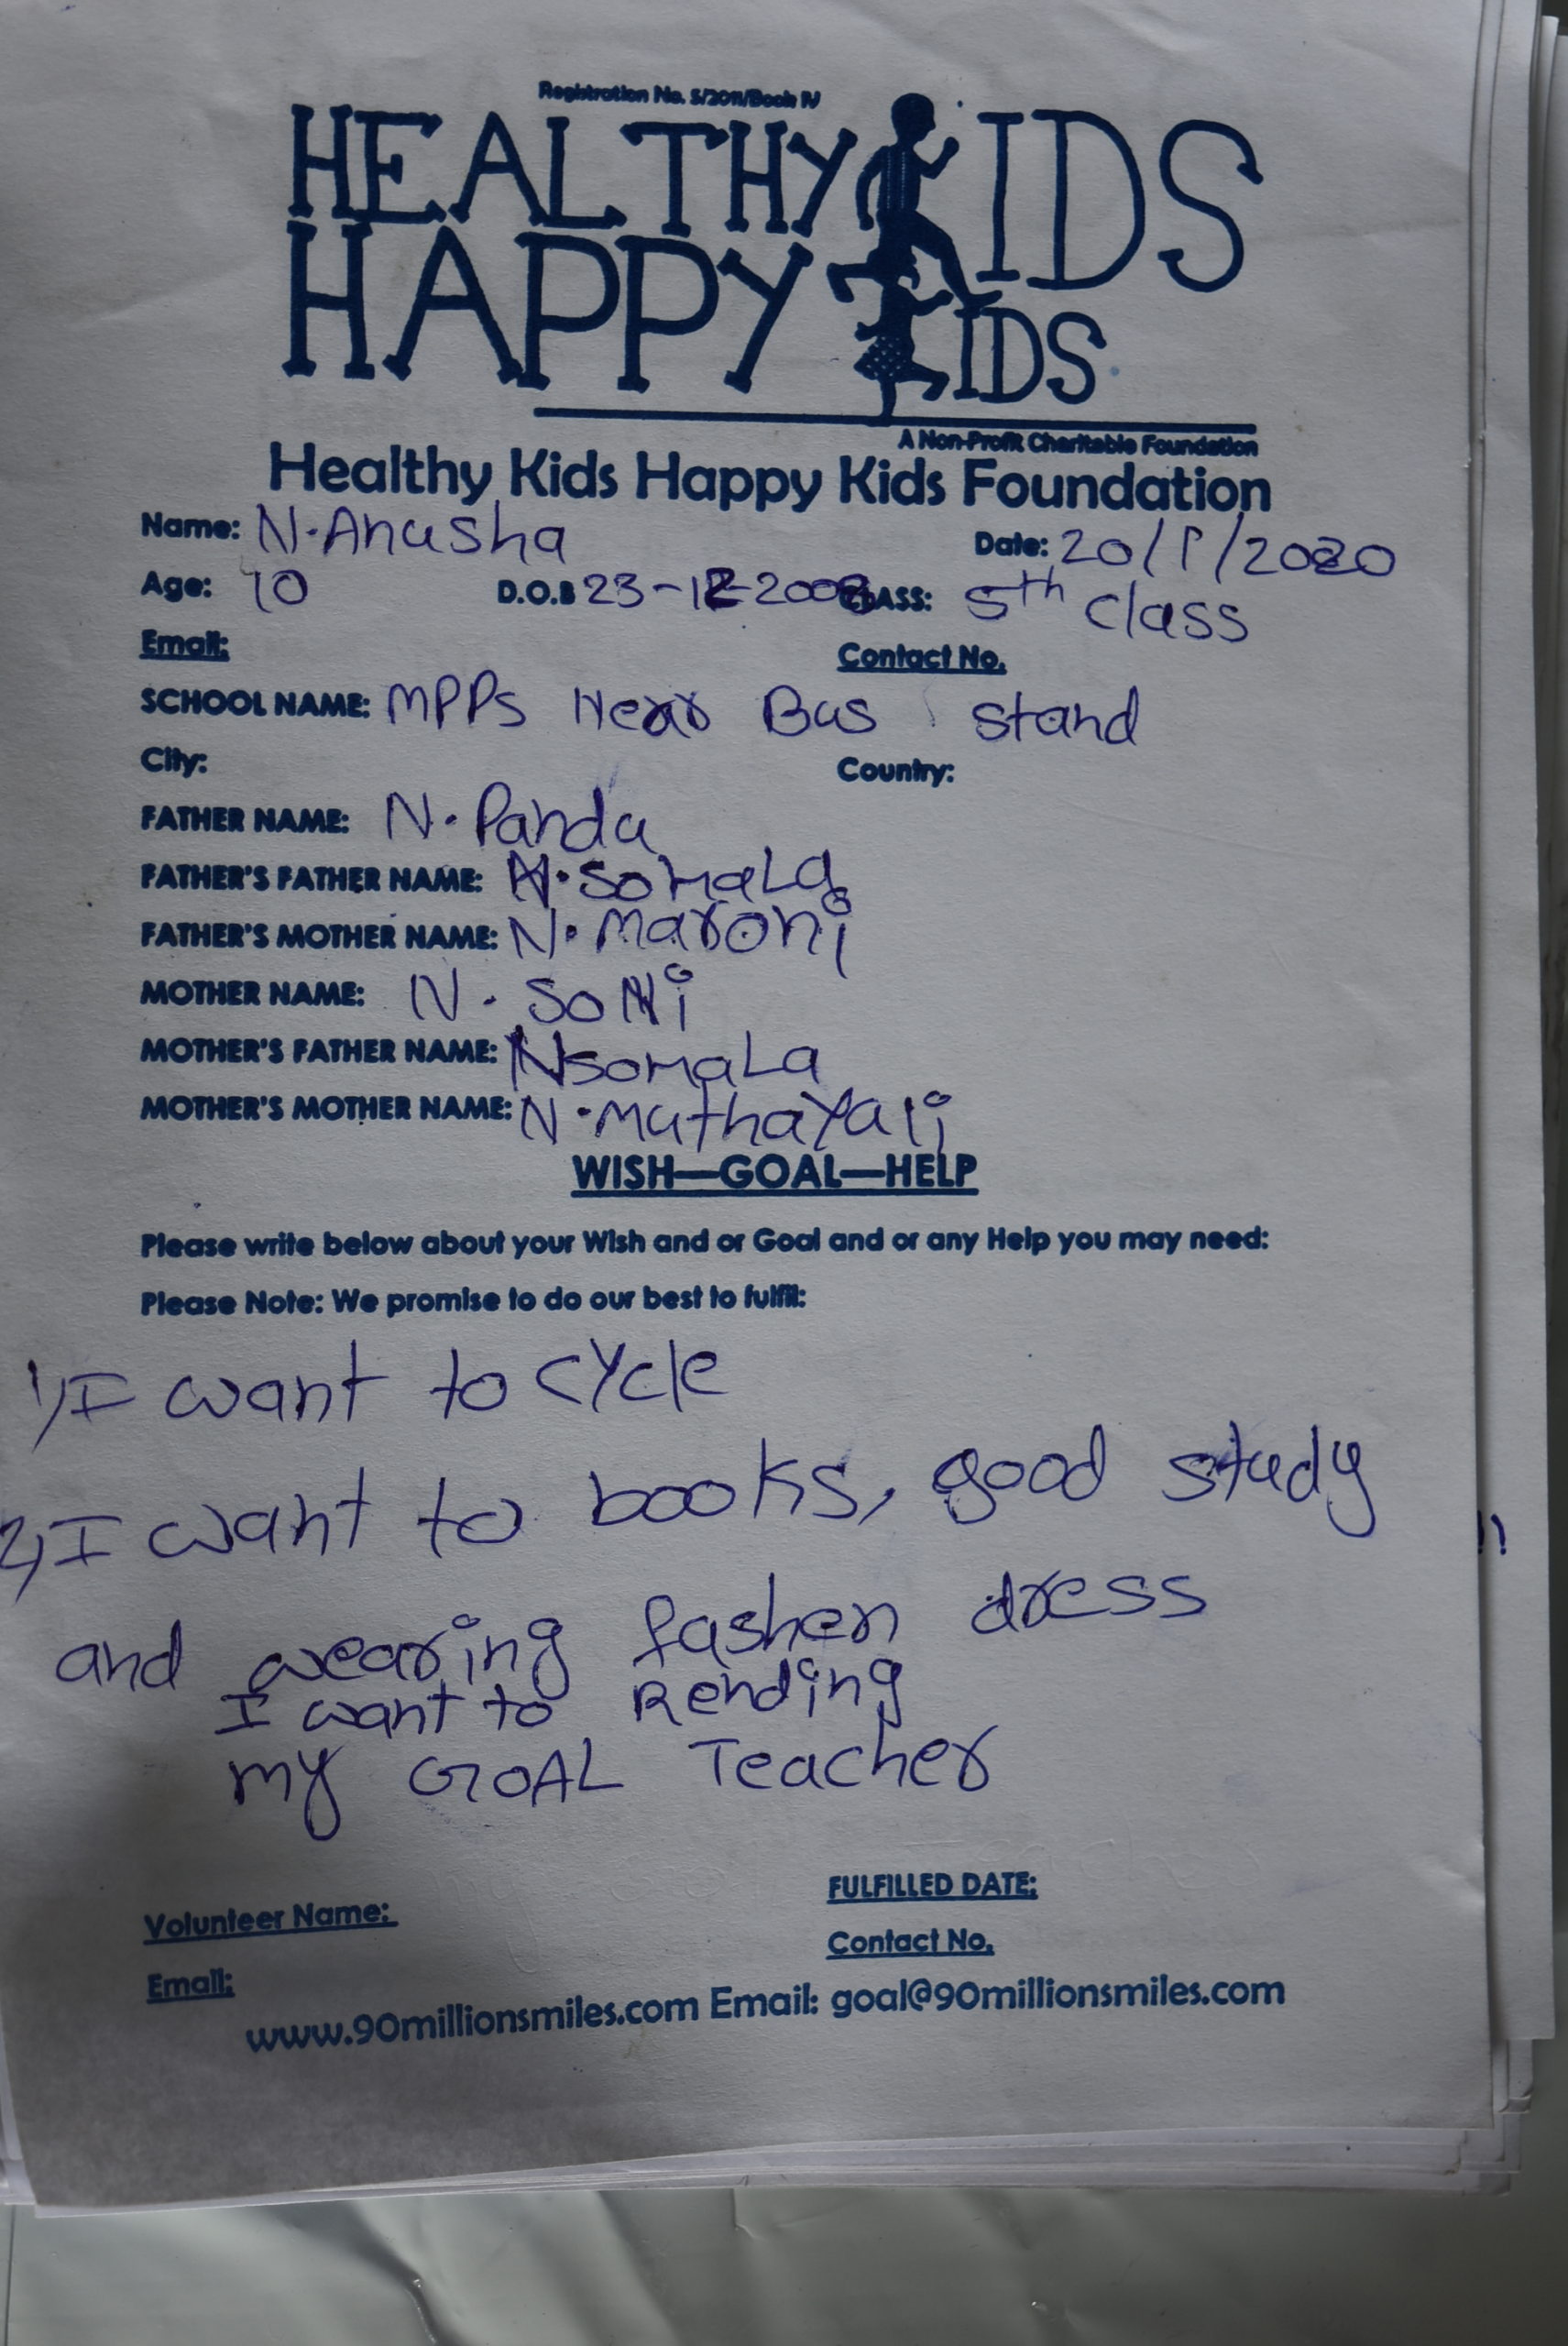 Registration No. 5/2011/Book IV
HEALTHY KIDS
HAPPY KIDS
A Non-Profit Charitable Foundation
Healthy Kids Happy Kids Foundation
Name: N.Anusha Date: 20/1/2020
Age: 10 D.O.B 23-12-2008 CLASS: 5th class
Email: Contact No.
SCHOOL NAME: MPPS Near Bus stand
City: Country:
FATHER NAME: N. Panda
FATHER'S FATHER NAME: N. SomaLa
FATHER'S MOTHER NAME: N. maroni
MOTHER NAME: N. SoNi
MOTHER'S FATHER NAME: NsomaLa
MOTHER'S MOTHER NAME: N. muthayali
WISH—GOAL—HELP
Please write below about your Wish and or Goal and or any Help you may need:
Please Note: We promise to do our best to fulfil:
1) I want to cycle
2) I want to books, good study
and wearing fashen dress
I want to Rending
my GOAL Teacher
FULFILLED DATE:
Volunteer Name:
Contact No.
Email:
www.90millionsmiles.com Email: goal@90millionsmiles.com